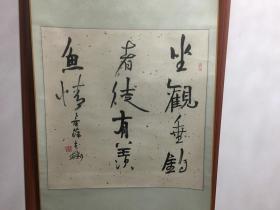 坐觀垂釣
者徒有羡
魚情